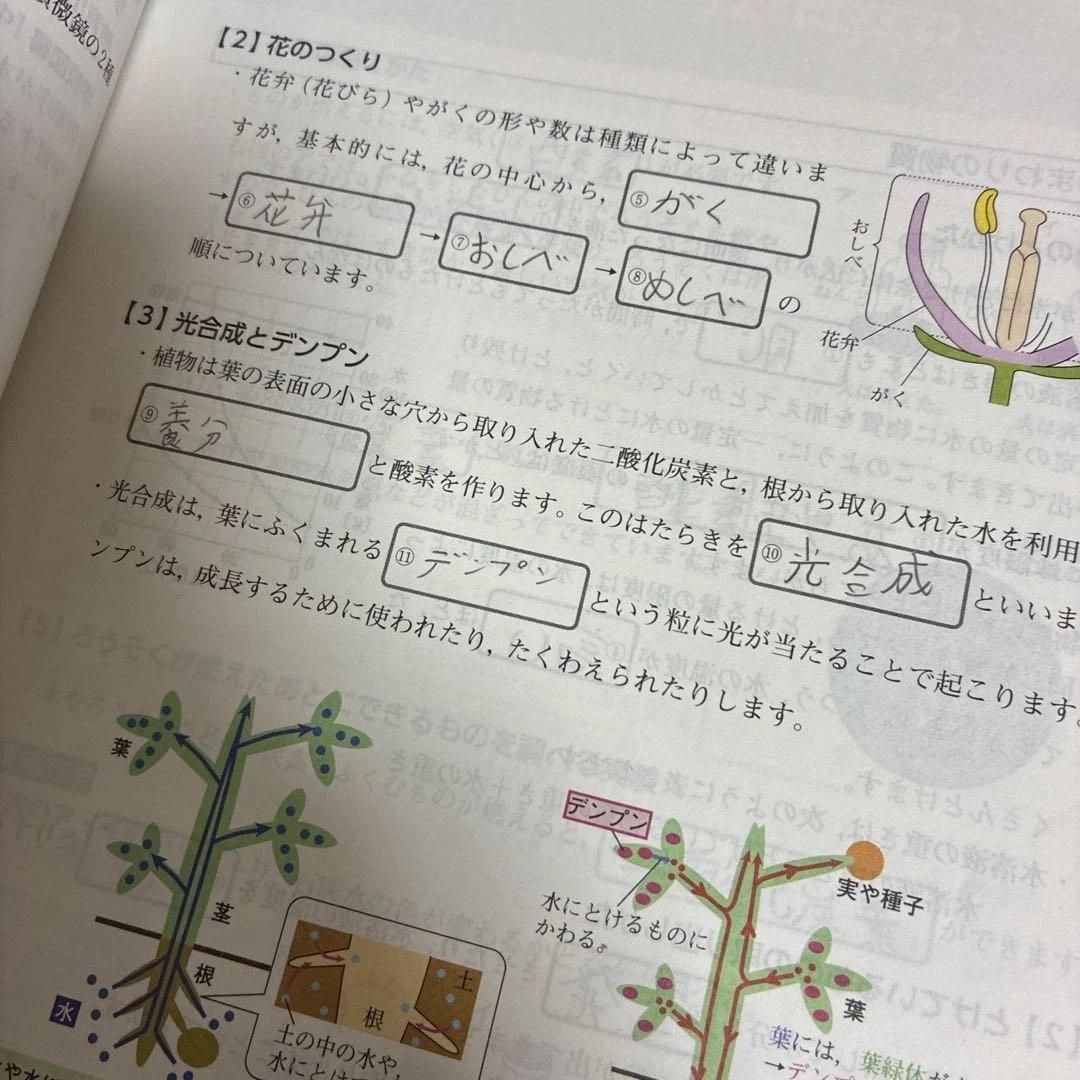 微鏡の2種
【2】花のつくり
・花弁(花びら)やがくの形や数は種類によって違いま
すが,基本的には,花の中心から,⑤がく
→⑥花弁→⑦おしべ→⑧めしべの
順についています。
おしべ
花弁
がく
【3】光合成とデンプン
・植物は葉の表面の小さな穴から取り入れた二酸化炭素と,根から取り入れた水を利用
⑨養分と酸素を作ります。このはたらきを⑩光合成といいま
・光合成は,葉にふくまれる⑪デンプンという粒に光が当たることで起こります。
ンプンは,成長するために使われたり,たくわえられたりします。
葉
茎
根
水
土
根
土の中の水や,
水にとけ
デンプン
水にとけるものに
かわる。
実や種子
葉
葉には,葉緑体が
→デンプ